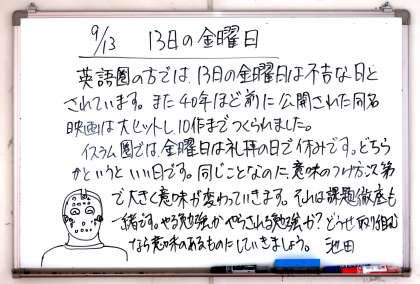 9/13　13日の金曜日
英語圏の方では、13日の金曜日は不吉な日と
されています。また40年ほど前に公開された同名
映画は大ヒットし、10作までつくられました。
イスラム圏では、金曜日は礼拝の日で休みです。どちら
かというといい日です。同じことなのに、意味のつけ方次第
で大きく意味が変わっていきます。それは課題徹底も
一緒です。やる勉強か やらされる勉強か？どうせ取り組む
なら意味のあるものにしていきましょう。池田